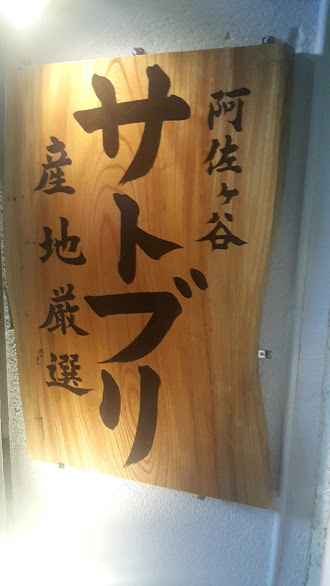 阿佐ヶ谷
サトブリ
産地厳選